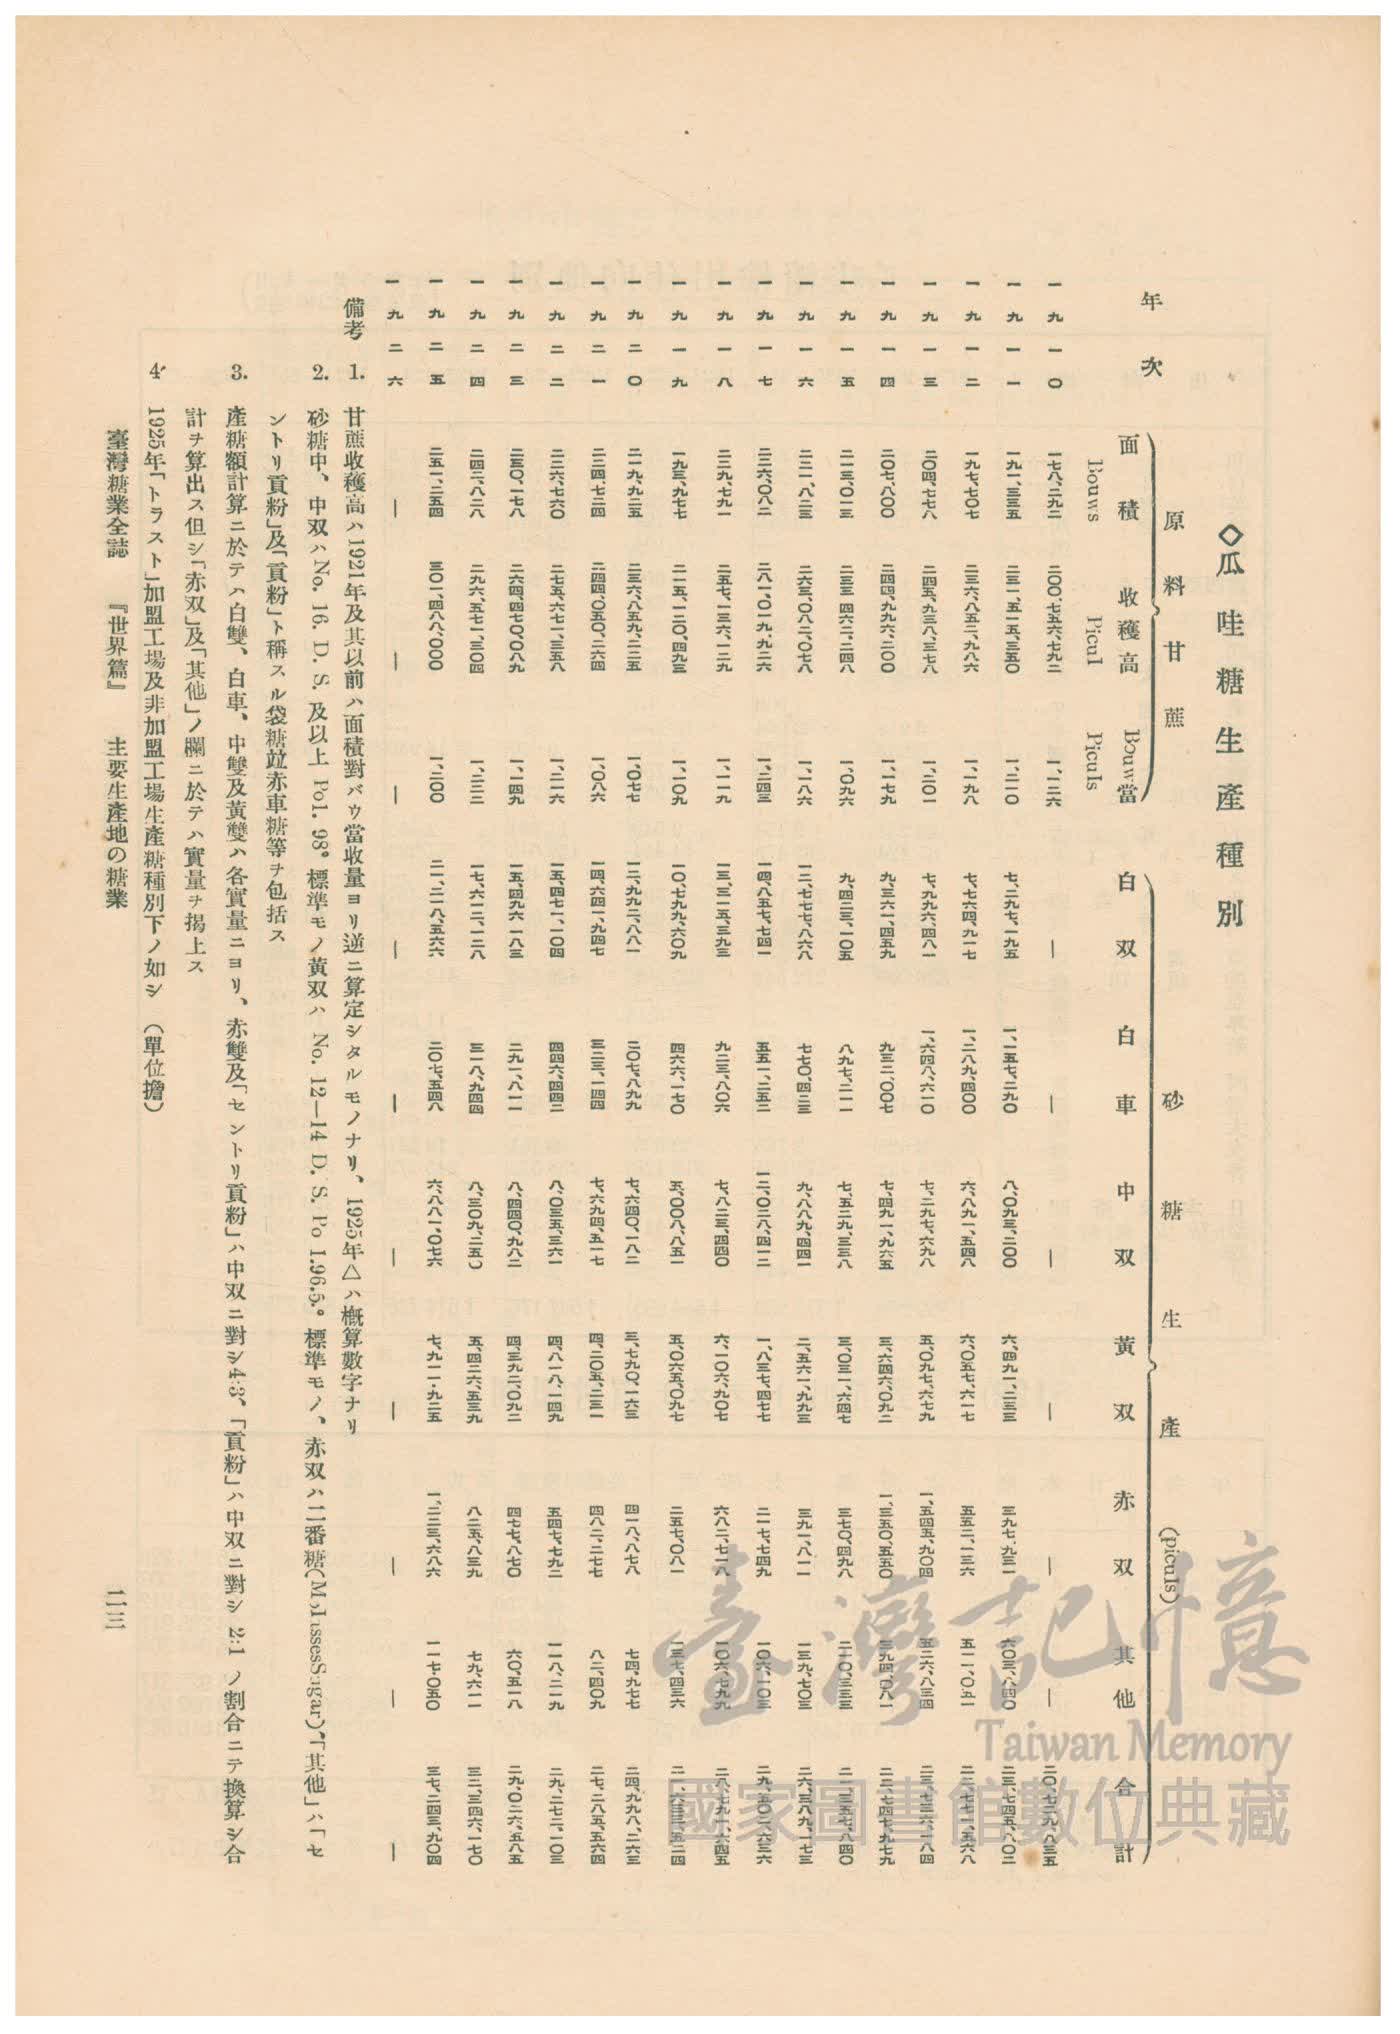 ◇瓜哇糖生產種別
原料甘蔗 砂糖生產 (piculs)
年次 面積 Bouws 收穫高 Picul Bouw當 Piculs 白双 白車 中双 黃双 赤双 其他 合計
一九一〇 一七八、二九二 二〇〇、七五六、七九二 一、一二六 — — — — — — 二〇、七二九、八三五
一九一一 一九一、三三五 二三一、五一五、三五〇 一、二一〇 七、二九七、一九五 一、一五七、二九〇 八、〇九三、二〇〇 六、四九一、二三三 三九七、九三一 六〇三、八四〇 二三、七四五、八〇二
一九一二 一九七、七〇七 二三六、八五二、九八六 一、一九八 七、七六四、九一七 一、二八九、四〇〇 六、八九一、五四八 六、〇五七、六一七 五五二、一三六 五一一、〇五一 二二、七七一、五六八
一九一三 二〇四、七七八 二四五、九三八、三七八 一、二〇一 七、九九六、四八一 一、六四八、六一〇 七、二九七、六九八 五、〇九七、六七九 一、五四五、九〇四 五二六、八三四 二三、七三六、一八四
一九一四 二〇七、八〇〇 二四四、九九六、二〇〇 一、一七九 九、三六一、四五九 九三二、〇〇七 七、四九一、九六五 三、六四六、〇九二 一、三五〇、五五〇 三九四、〇八一 二二、七四七、九七九
一九一五 二一三、〇一三 二三三、四六二、二四八 一、〇九六 九、四二三、一〇五 八九七、二一一 七、五二九、三三八 三、〇三一、六四七 三七〇、四九八 二一〇、三三三 二一、三五七、八四〇
一九一六 二二一、八二三 二六三、〇八二、〇七八 一、一八六 一二、七七七、八六八 七七〇、四二三 九、八八九、四四一 二、五六一、九九三 三九一、八一一 一三九、七〇三 二六、三八九、一七三
一九一七 二二六、〇八二 二八一、〇一九、九二六 一、二四三 一四、八五七、七四一 五五一、二五二 一二、〇二八、四一二 一、八三七、四七七 二一七、七四九 一〇六、一〇三 二九、五〇二、六三六
一九一八 二二九、七九一 二五七、一三六、一二九 一、一一九 一三、三一五、三九三 九二三、八〇六 七、八二三、四四〇 六、一〇六、九〇七 六八二、七一八 一〇六、七九九 二八、七九一、六四五
一九一九 一九三、九七七 二一五、一二〇、四九三 一、一〇九 一〇、七九九、六〇九 四六六、一七〇 五、〇〇八、八五一 五、〇六五、〇九七 二五七、〇八一 一三七、四三六 二一、六三三、五二四
一九二〇 二一九、九二五 二三六、八五九、二二五 一、〇七七 一二、九九二、八八一 二〇七、八九九 七、六四〇、一八二 三、七九〇、一六三 四一八、八七八 七四、九七七 二四、九九八、二六三
一九二一 二二四、七二四 二四四、〇五〇、二六四 一、〇八六 一四、六四一、九四七 三二三、一四四 七、六九四、五一七 四、二〇五、二三一 四八二、二七七 八二、四〇九 二七、二八五、五六四
一九二二 二二六、七六〇 二七五、六七一、三五八 一、二一六 一五、四七一、一〇四 四四六、四四二 八、〇三五、三六一 四、八一八、一四九 五四七、七九二 一一八、二一九 二九、二七二、一〇三
一九二三 二三〇、一七八 二六四、四七〇、〇八九 一、一四九 一五、四九六、一八三 二九一、八一一 八、四四〇、九八二 四、三九二、〇九二 四七七、八七〇 六〇、五一八 二九、〇二六、五八五
一九二四 二四二、八二八 二九六、五七一、三〇四 一、二二二 一七、六一二、一二八 三一八、九四四 八、三〇九、二五〇 五、四二六、五三九 八二五、八三九 七九、六一一 三二、三四六、一七〇
一九二五 二五一、二五四 三〇一、四八八、〇〇〇 一、二〇〇 二一、二一八、五六六 二〇七、五四八 六、八八一、〇七六 七、九一一、九二五 一、二二三、六八六 一一七、〇五〇 三七、二四三、九〇四
一九二六 — — — — — — — — — —
備考 1. 甘蔗收穫高ハ1921年及其以前ハ面積對バウ當收量ヨリ逆ニ算定シタルモノナリ、1925年△ハ概算數字ナリ
2. 砂糖中、中双ハNo. 16. D. S. 及以上 Pol. 98°標準モノ黃双ハ No. 12—14 D. S. Po 1.96.5.°標準モノ、赤双ハ二番糖(MolassesSugar)、「其他」ハ「セ
ントリ貢粉」及「貢粉」ト稱スル袋糖竝赤車糖等ヲ包括ス
3. 產糖額計算ニ於テハ白雙、白車、中雙及黃雙ハ各實量ニヨリ、赤雙及「セントリ貢粉」ハ中双ニ對シ4:3、「貢粉」ハ中双ニ對シ 2:1 ノ割合ニテ換算シ合
計ヲ算出ス但シ「赤双」及「其他」ノ欄ニ於テハ實量ヲ揭上ス
4 1925年「トラスト」加盟工場及非加盟工場生產糖種別下ノ如シ (單位擔)
臺灣糖業全誌 『世界篇』 主要生產地の糖業 二三
臺灣記憶
Taiwan Memory
國家圖書館數位典藏